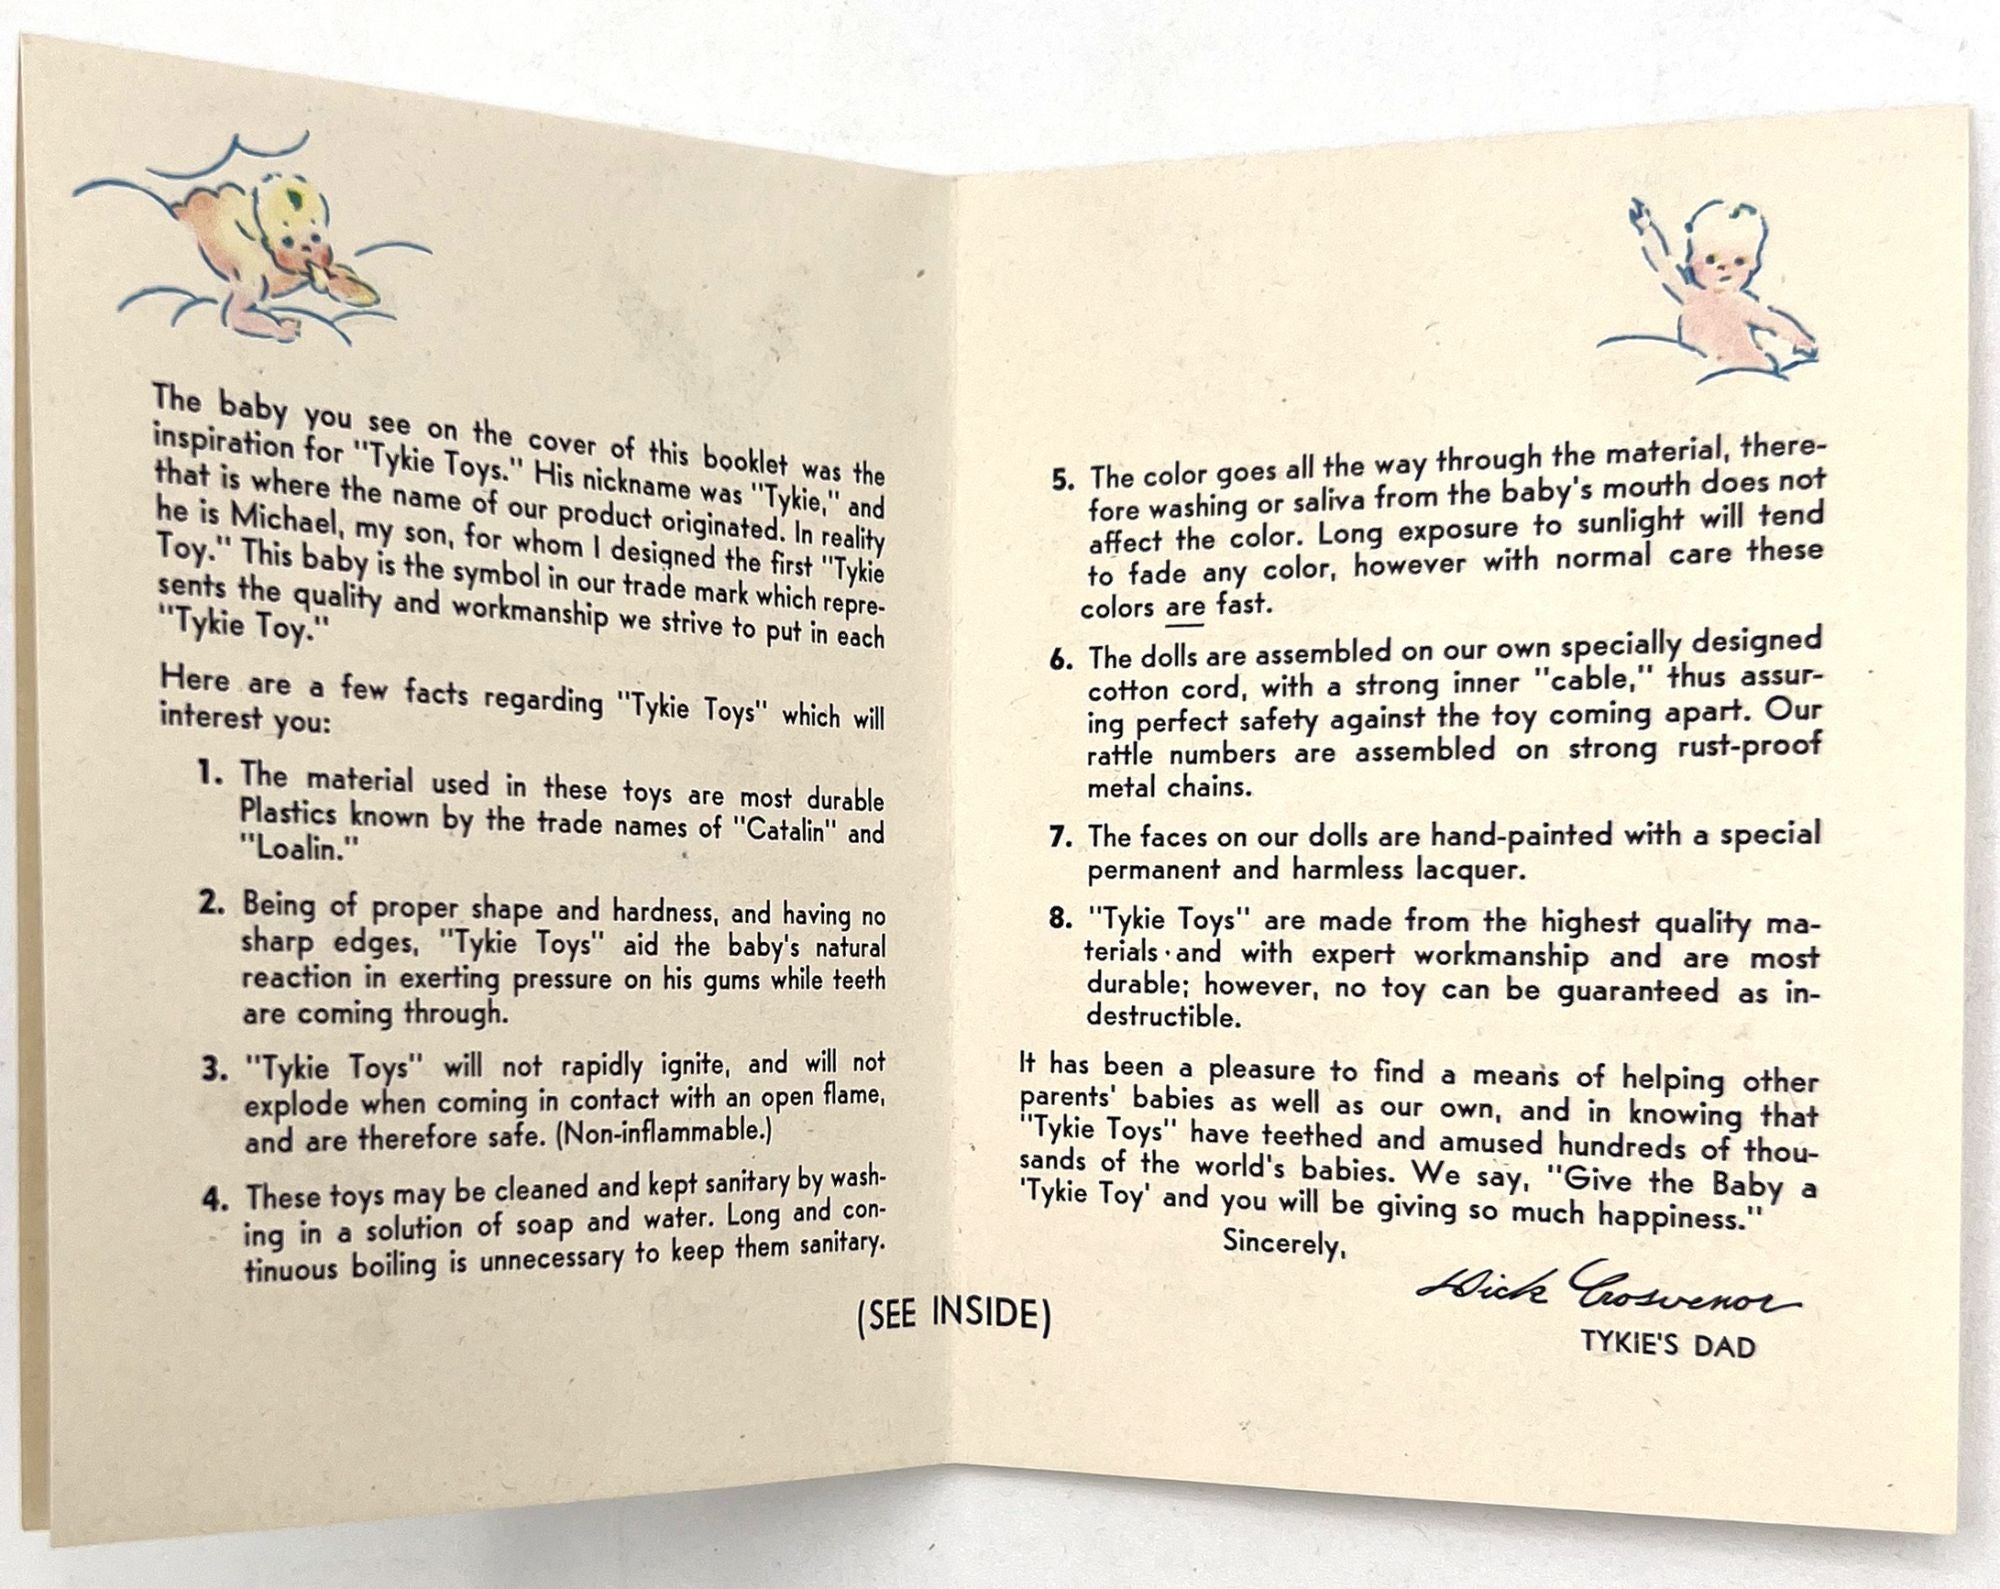 The baby you see on the cover of this booklet was the
inspiration for "Tykie Toys." His nickname was "Tykie," and
that is where the name of our product originated. In reality
he is Michael, my son, for whom I designed the first "Tykie
Toy." This baby is the symbol in our trade mark which repre-
sents the quality and workmanship we strive to put in each
"Tykie Toy."
Here are a few facts regarding "Tykie Toys" which will
interest you:
1. The material used in these toys are most durable
Plastics known by the trade names of "Catalin" and
"Loalin."
2. Being of proper shape and hardness, and having no
sharp edges, "Tykie Toys" aid the baby's natural
reaction in exerting pressure on his gums while teeth
are coming through.
3. "Tykie Toys" will not rapidly ignite, and will not
explode when coming in contact with an open flame,
and are therefore safe. (Non-inflammable.)
4. These toys may be cleaned and kept sanitary by wash-
ing in a solution of soap and water. Long and con-
tinuous boiling is unnecessary to keep them sanitary.
5. The color goes all the way through the material, there-
fore washing or saliva from the baby's mouth does not
affect the color. Long exposure to sunlight will tend
to fade any color, however with normal care these
colors are fast.
6. The dolls are assembled on our own specially designed
cotton cord, with a strong inner "cable," thus assur-
ing perfect safety against the toy coming apart. Our
rattle numbers are assembled on strong rust-proof
metal chains.
7. The faces on our dolls are hand-painted with a special
permanent and harmless lacquer.
8. "Tykie Toys" are made from the highest quality ma-
terials and with expert workmanship and are most
durable; however, no toy can be guaranteed as in-
destructible.
It has been a pleasure to find a means of helping other
parents' babies as well as our own, and in knowing that
"Tykie Toys" have teethed and amused hundreds of thou-
sands of the world's babies. We say, "Give the Baby a
'Tykie Toy' and you will be giving so much happiness."
Sincerely,
Dick Grosvenor
TYKIE'S DAD
(SEE INSIDE)